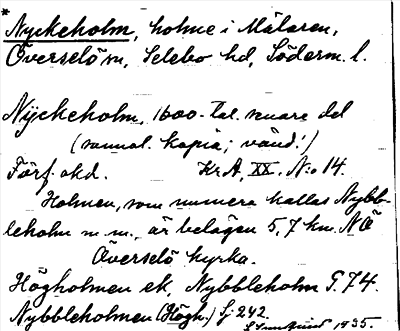 *
Nyckeholm, holme i Mälaren,
Överselö sn, Selebo hd, Söderm. l.
Nÿckeholm, 1600-tal. senare del
(samt. kopia; vänd!)
Förf. okd. Kr A, XX. N:o 14.
Holmen, som numera kallas Nybb-
leholm m.m., är belägen 5,7 km. NÖ
Överselö kyrka.
Högholmen ek, Nybbleholm G. 74.
Nybbleholmen (Högh.) Sj 242.
1935.